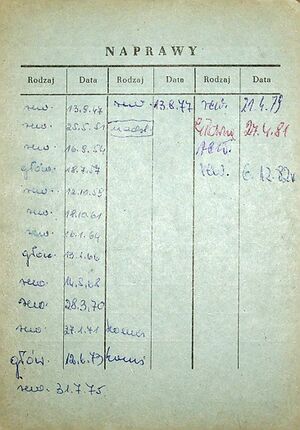 NAPRAWY
Rodzaj Data Rodzaj Data Rodzaj Data
rew. 13.8.47 rew. 13.8.77 rew. 21.4.79
rew. 25.5.51 Główna 27.4.81
rew. 16.8.54
głów. 18.7.57 rew. 6.12.82
rew. 12.10.59
rew. 18.10.61
rew. 1.64
głów. 66
rew. 68
rew. 28.3.70
rew. 27.1.71
głów. 12.6.73
rew. 31.7.75